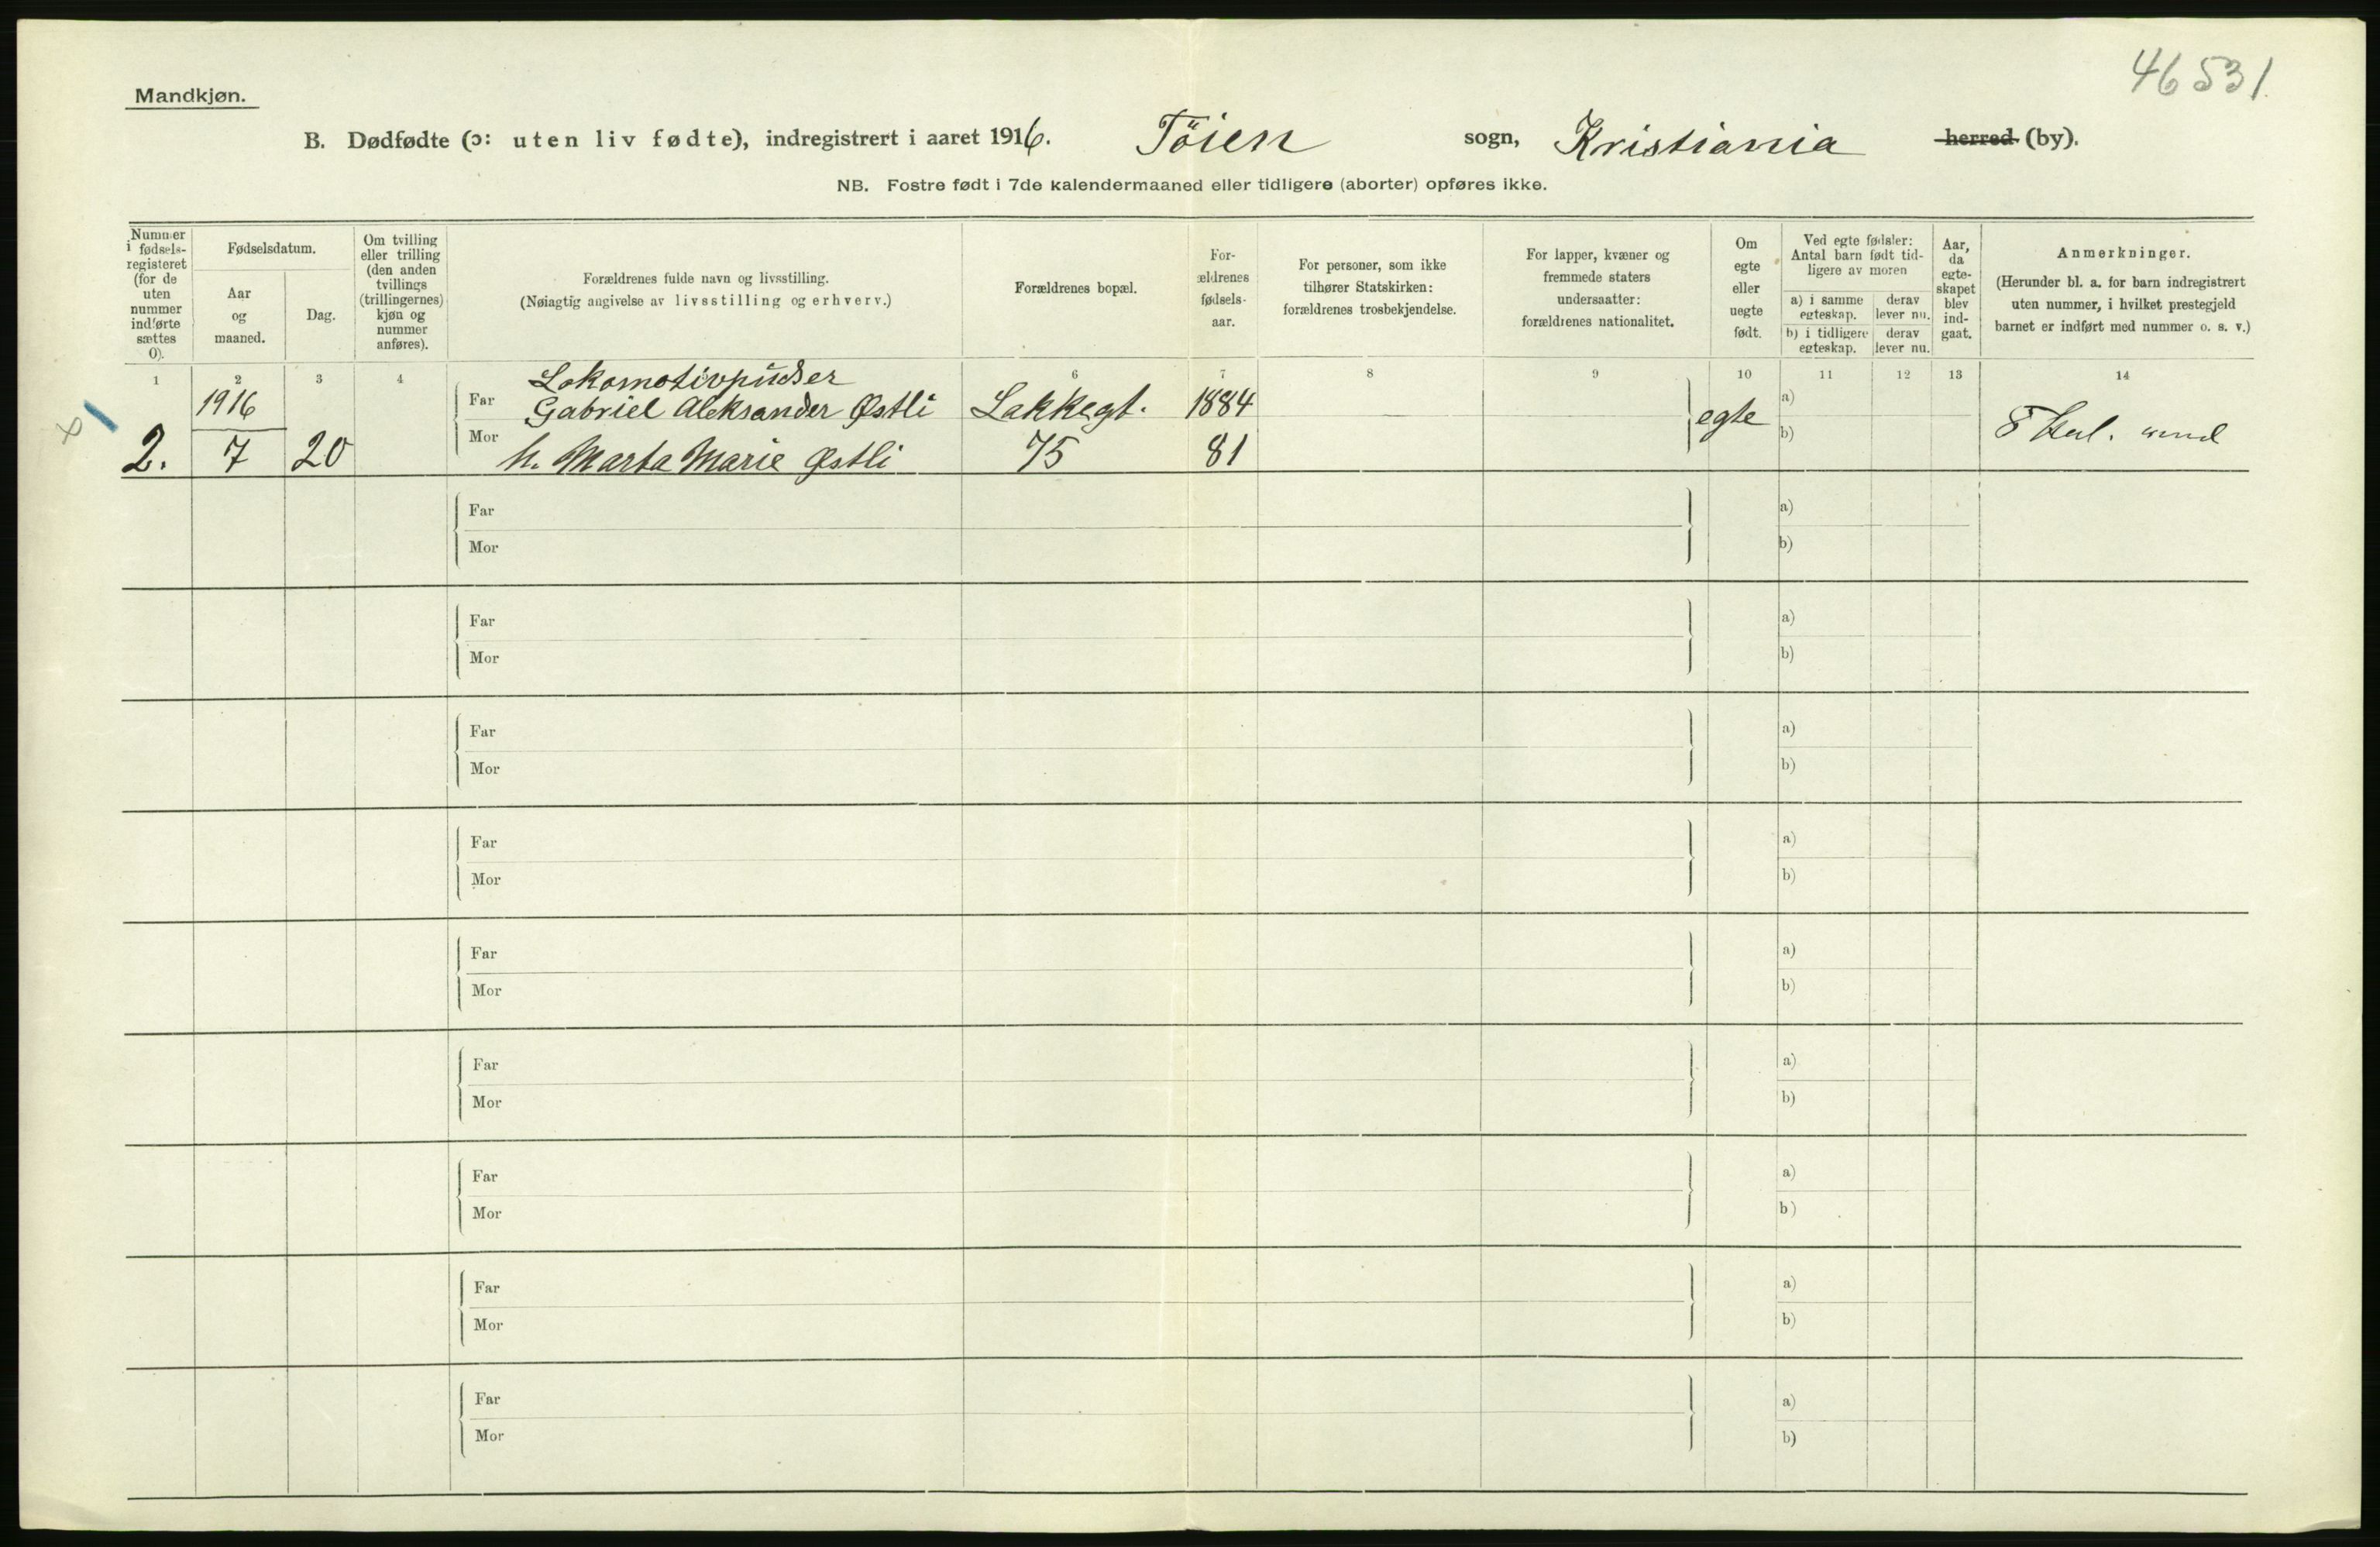 46531.
Mandkjøn.
B. Dødfødte (ɔ: uten liv fødte), indregistrert i aaret 1916. Töien sogn, Kristiania herred (by).
NB. Fostre født i 7de kalendermaaned eller tidligere (aborter) opføres ikke.
Nummer i fødsels-registeret (for de uten nummer indførte sættes 0).
Fødselsdatum.
Aar og maaned.
Dag.
Om tvilling eller trilling (den anden tvillings (trillingernes) kjøn og nummer anføres).
Forældrenes fulde navn og livsstilling.
(Nøiagtig angivelse av livsstilling og erhverv.)
Forældrenes bopæl.
For-ældrenes fødsels-aar.
For personer, som ikke tilhører Statskirken: forældrenes trosbekjendelse.
For lapper, kvæner og fremmede staters undersaatter: forældrenes nationalitet.
Om egte eller uegte født.
Ved egte fødsler: Antal barn født tid-ligere av moren
a) i samme egteskap.
derav lever nu.
b) i tidligere egteskap.
derav lever nu.
Aar, da egte-skapet blev ind-gaat.
Anmerkninger.
(Herunder bl. a. for barn indregistrert uten nummer, i hvilket prestegjeld barnet er indført med nummer o. s. v.)
1 2 3 4 6 7 8 9 10 11 12 13 14
Lokomotivpudser
1916 Far Gabriel Aleksander Østli Lakkegt. 1884 egte a)
2. 7 20 Mor h. Marta Marie Østli 75 81 b) 8
Far a)
Mor b)
Far a)
Mor b)
Far a)
Mor b)
Far a)
Mor b)
Far a)
Mor b)
Far a)
Mor b)
Far a)
Mor b)
Far a)
Mor b)
Far a)
Mor b)